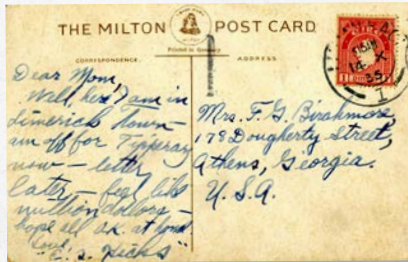 THE MILTON POST CARD
Printed in Germany
CORRESPONDENCE.
ADDRESS.
Dear Mom,
Well, here I am in
Limerick town —
am off for Tipperary
now — letter
later — feel like
million dollars —
hope all ok. at home
Love,
Mrs. F. G. Birchmore,
178 Dougherty Street,
Athens, Georgia.
U.S.A.
14 X
35
1